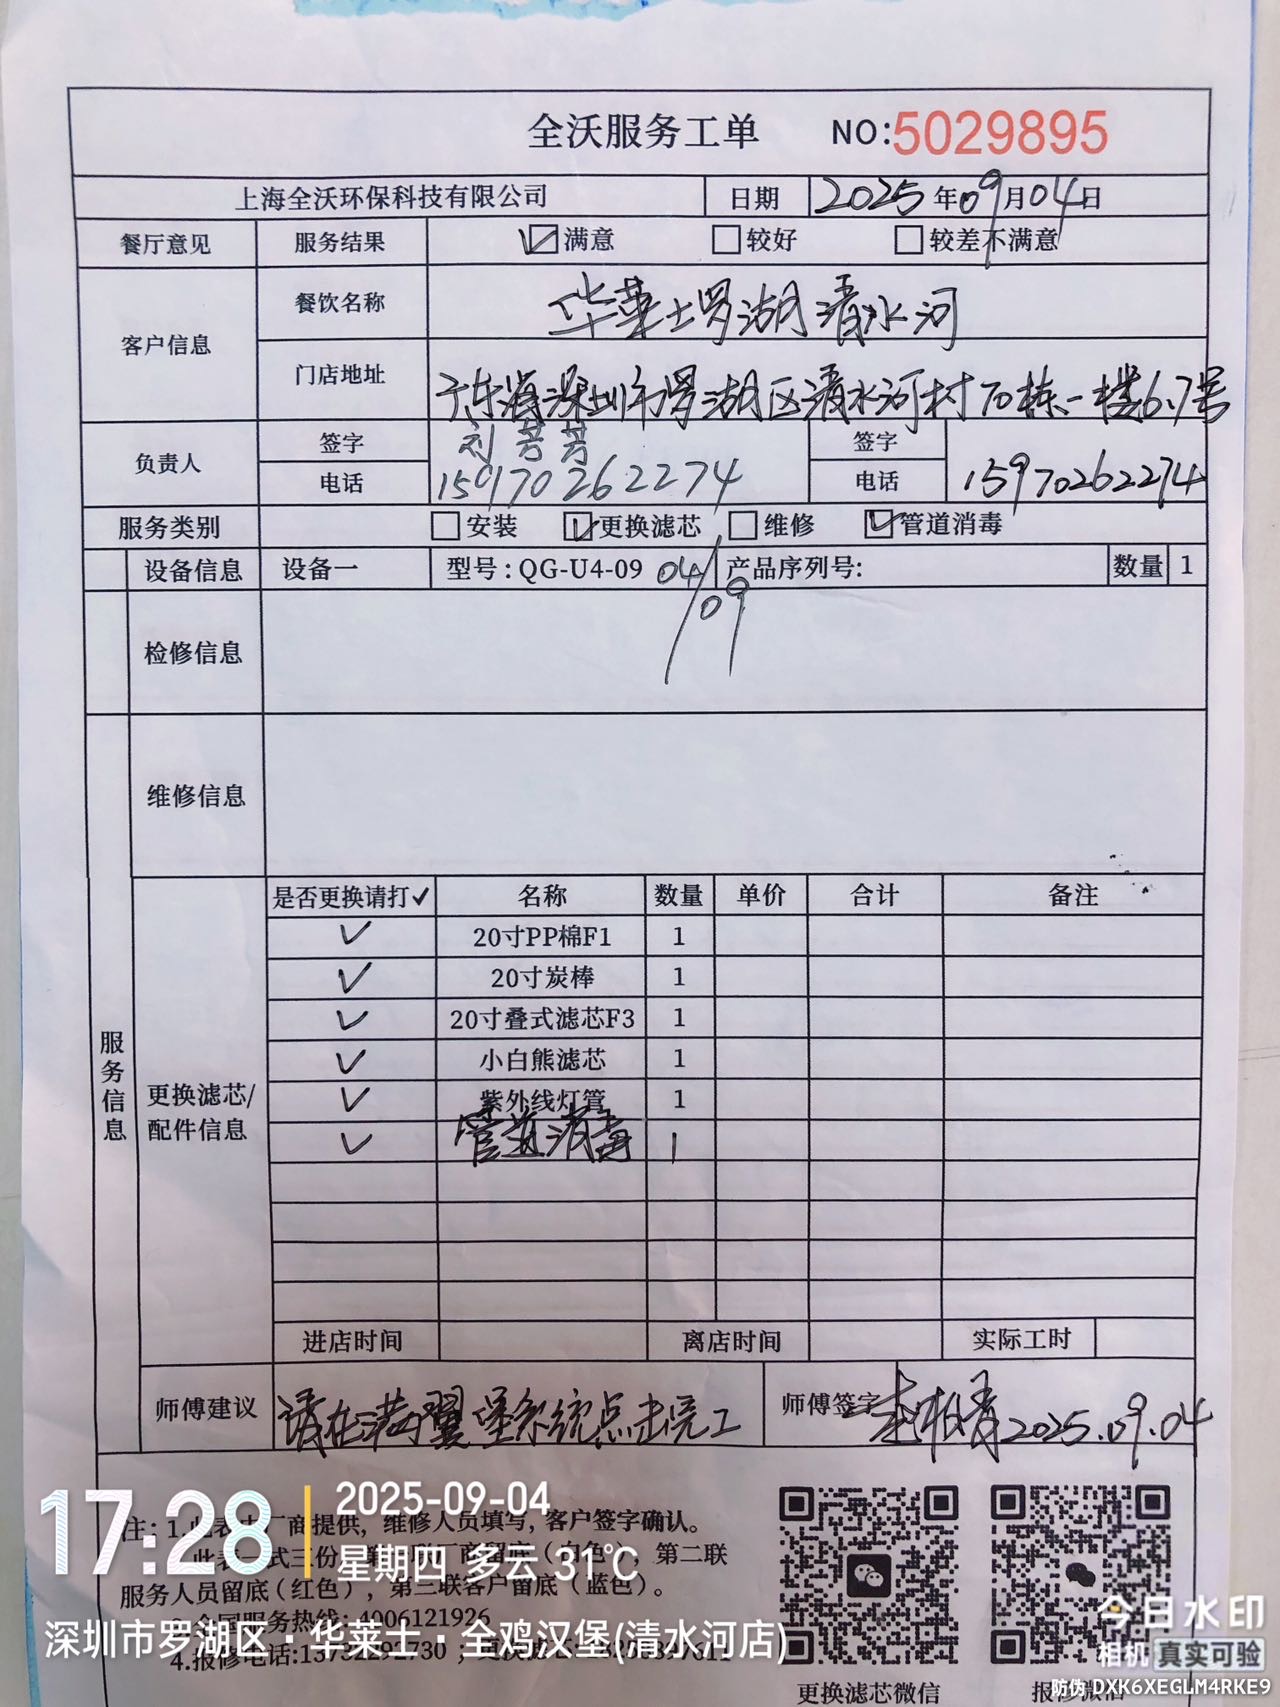 全沃服务工单 NO:5029895
上海全沃环保科技有限公司 日期 2025年09月04日
餐厅意见 服务结果 满意 较好 较差不满意
客户信息 餐饮名称 华莱士罗湖清水河
门店地址 广东省深圳市罗湖区清水河村70栋一楼6.7号
负责人 签字 刘芸芸 签字
电话 15970262274 电话 15970262274
服务类别 安装 更换滤芯 维修 管道消毒
设备信息 设备一 型号:QG-U4-09 产品序列号: 数量 1
04/09
检修信息
维修信息
服务信息
更换滤芯/配件信息
是否更换请打✓ 名称 数量 单价 合计 备注
✓ 20寸PP棉F1 1
✓ 20寸炭棒 1
✓ 20寸叠式滤芯F3 1
✓ 小白熊滤芯 1
✓ 紫外线灯管 1
✓ 管道消毒 1
进店时间 离店时间 实际工时
师傅建议 请在满翼堡系统点击完工 师傅签字 2025.09.04
注: 1.此表由厂商提供, 维修人员填写, 客户签字确认。
此表一式三份, 第一联厂商留底(白色), 第二联
服务人员留底(红色), 第三联客户留底(蓝色)。
全国服务热线: 4006121926
4.报修电话:
更换滤芯微信 报修微信
17:28
2025-09-04
星期四 多云 31℃
深圳市罗湖区·华莱士·全鸡汉堡(清水河店)
今日水印
相机 真实可验
防伪 DXK6XEGLM4RKE9